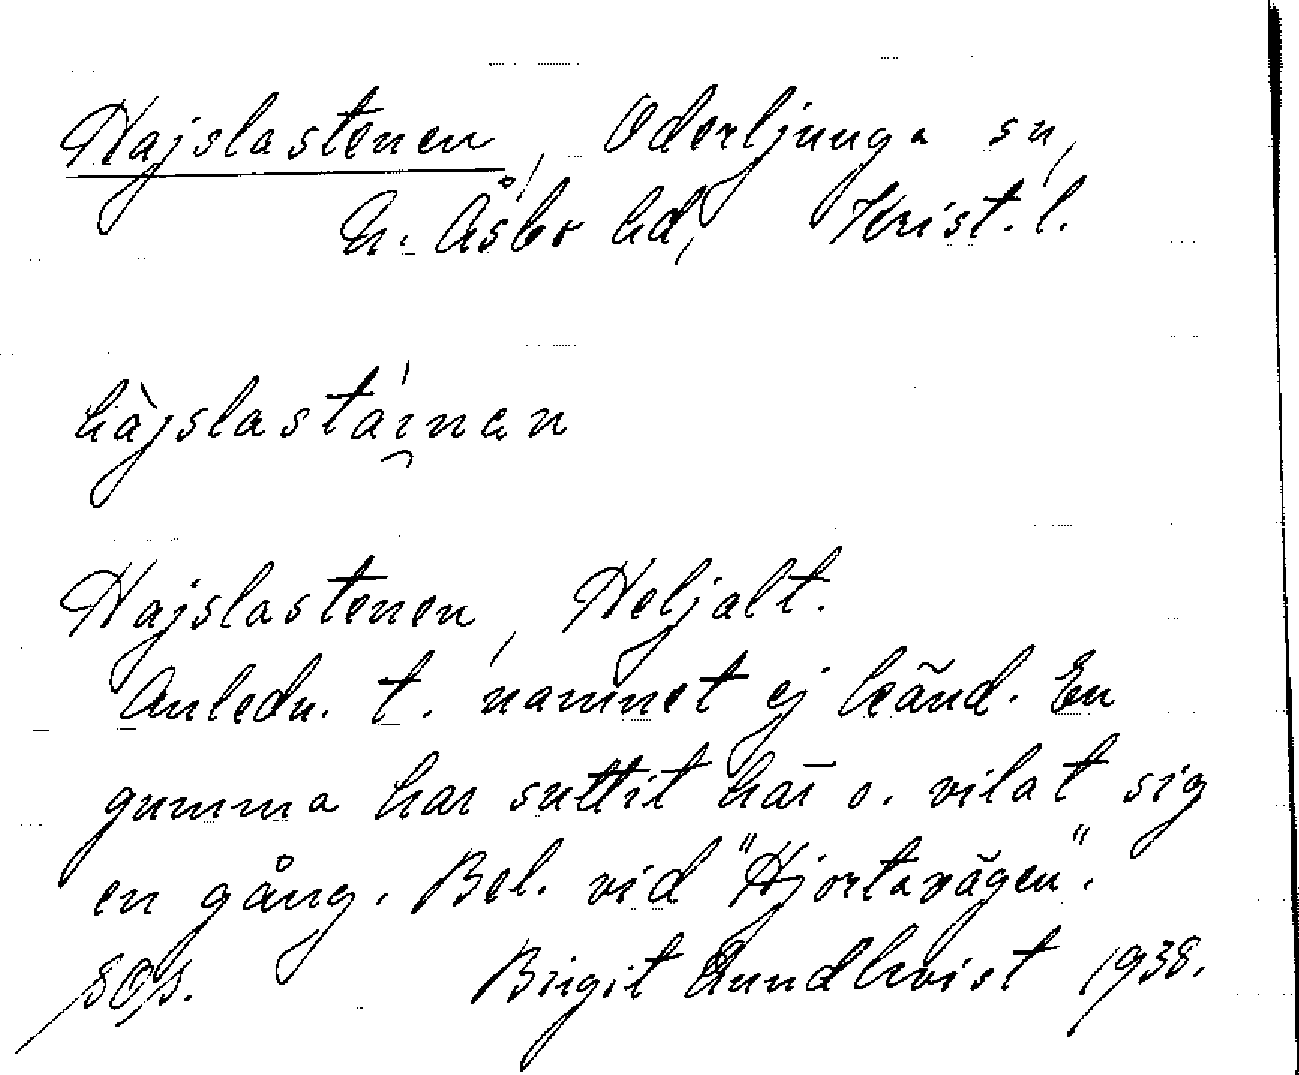 Hajslastenen, Oderljunga sn,
N. Åsbo hd, Krist. l.
hàjslastáinen
Hajslastenen, Heljalt.
Anledn. t. namnet ej känd. En
gumma har suttit här o. vilat sig
en gång. Bel. vid "Hjortavägen".
Birgit Lundkvist 1938.